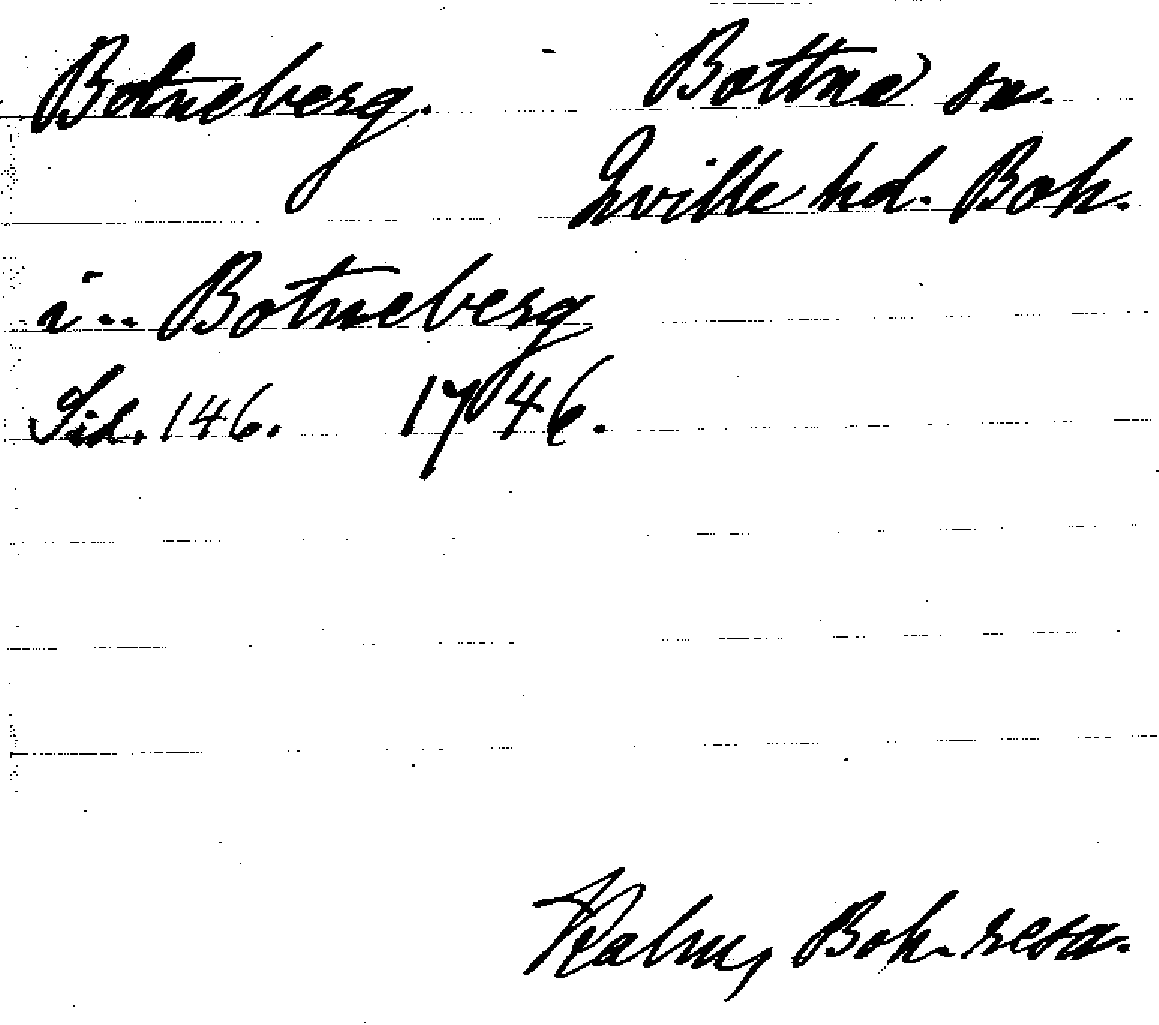 Botneberg. Bottna sn.
Qville hd. Boh.
i .. Botneberg
Sid. 146. 1746.
Kalm, Boh. resa.